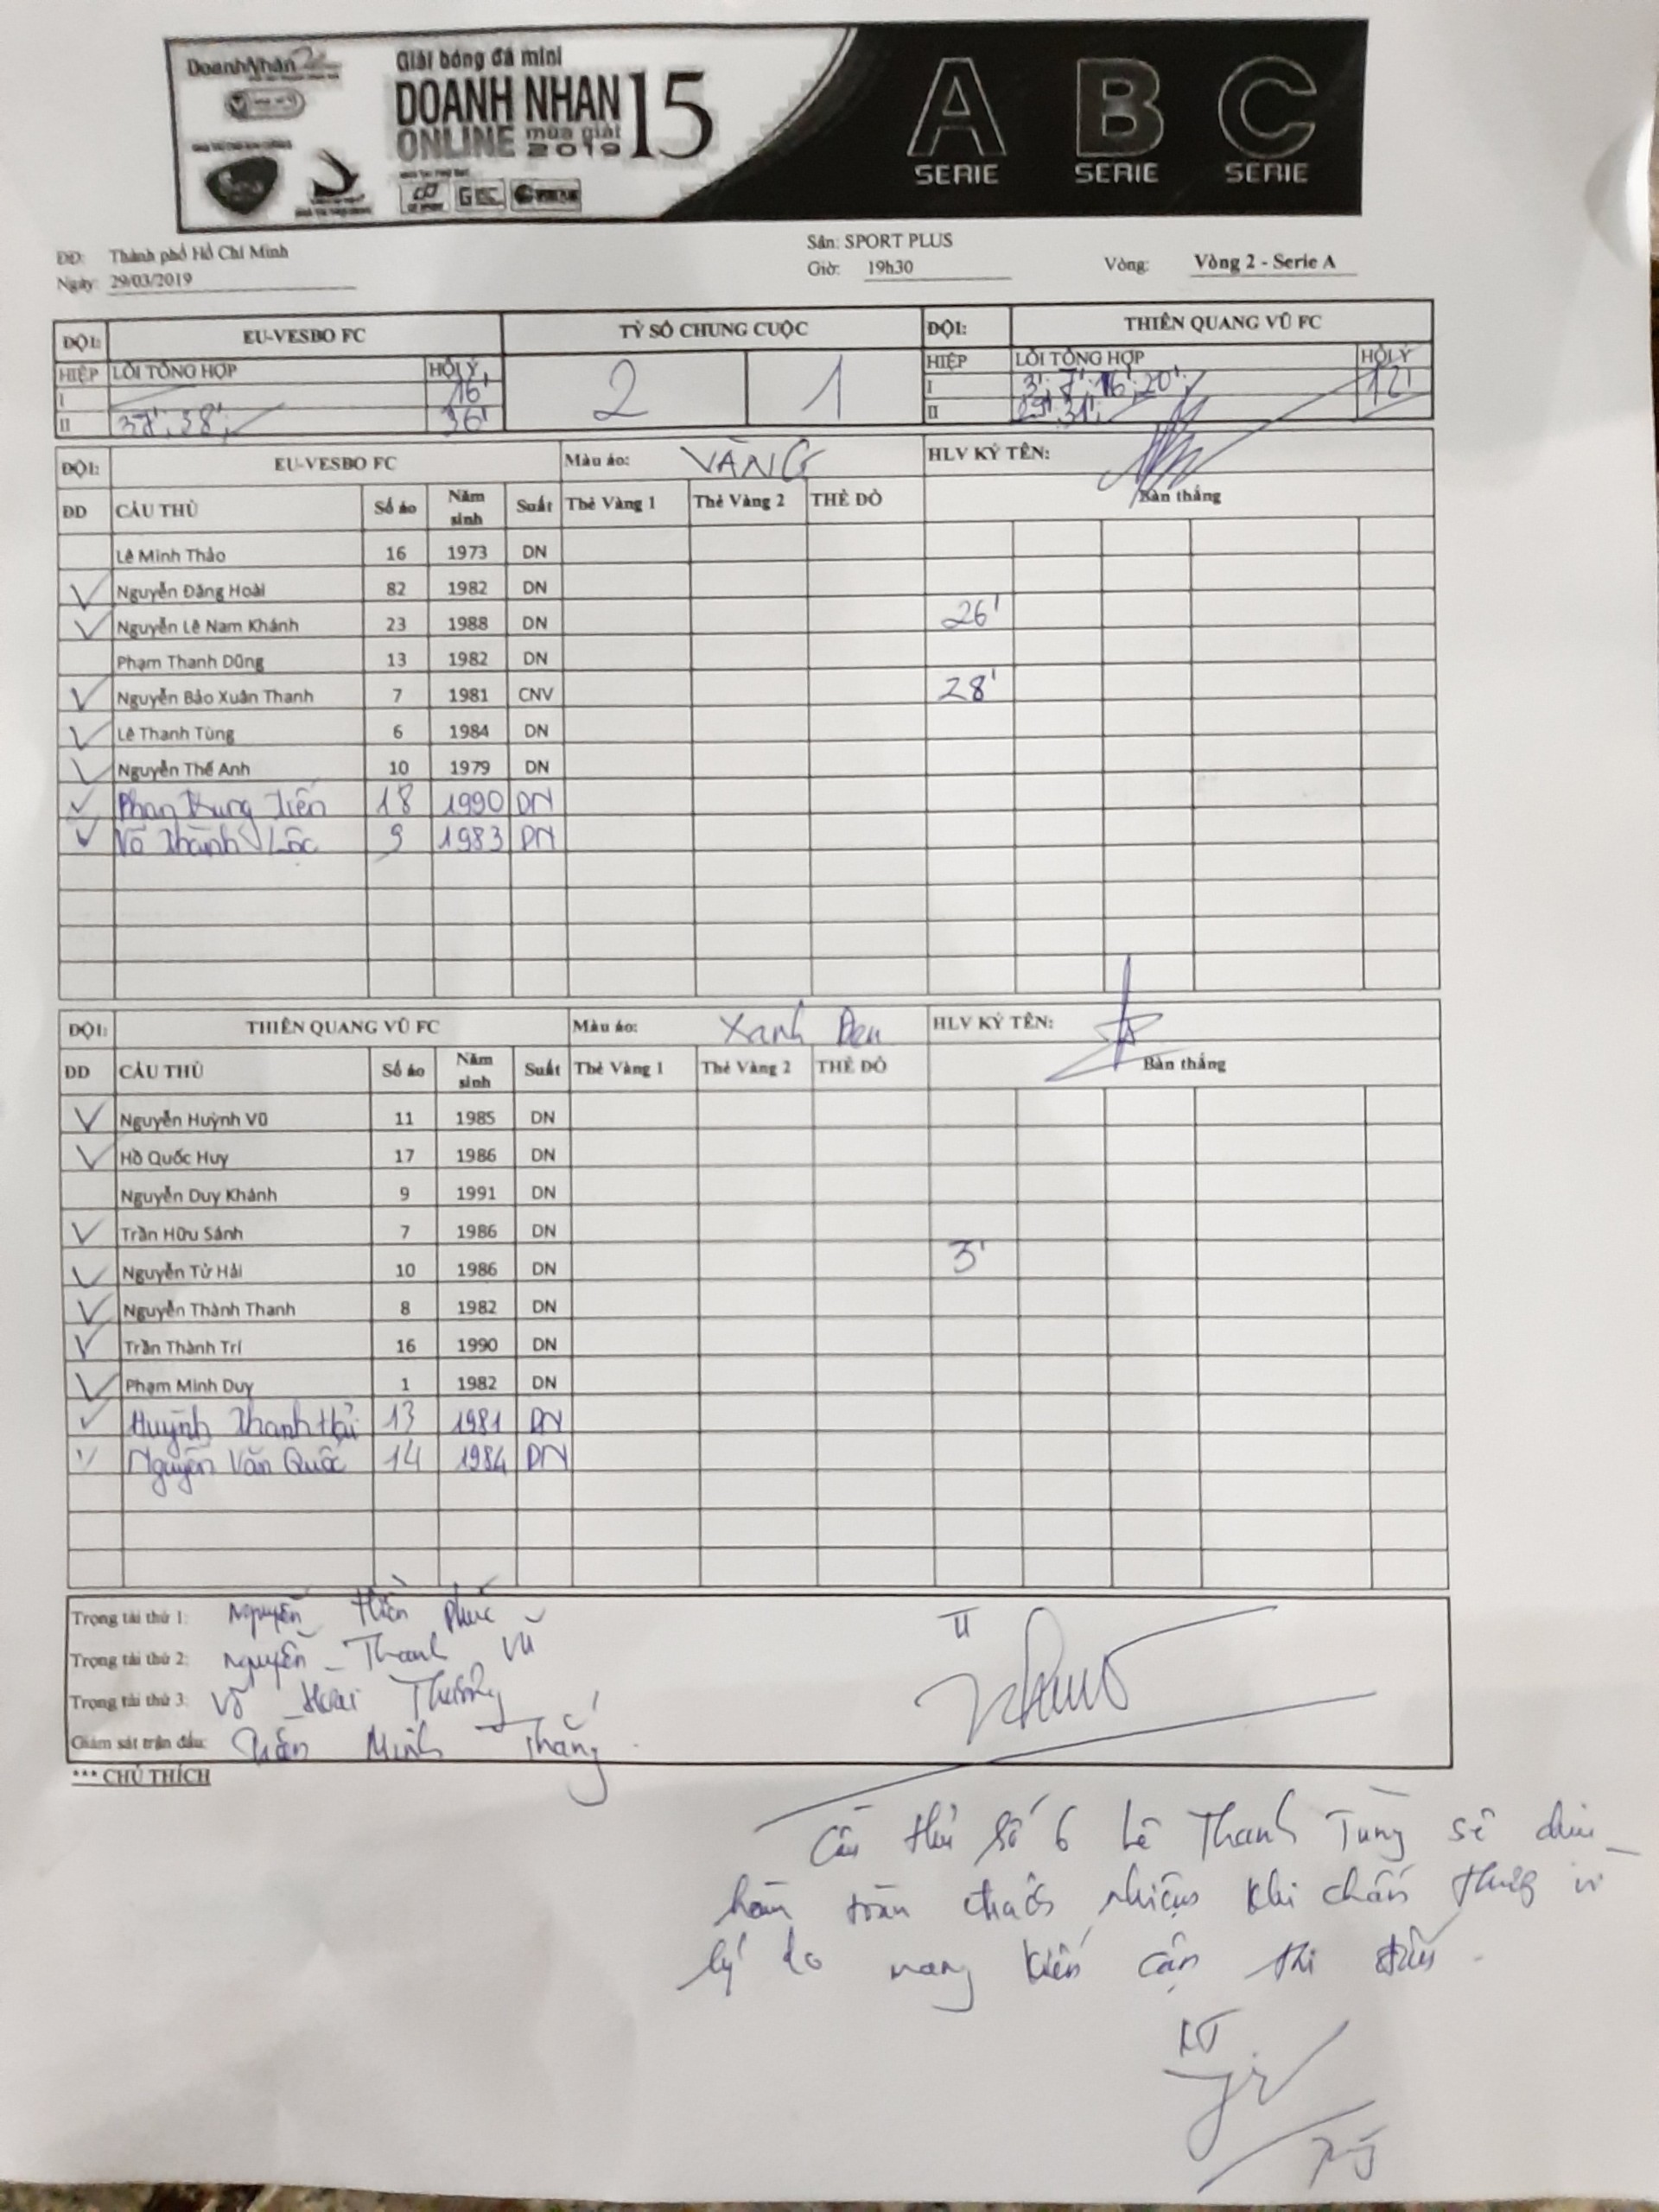 DoanhNhân
Giải bóng đá mini
DOANH NHAN 15
ONLINE mùa giải
2019
A B C
SERIE SERIE SERIE
ĐĐ: Thành phố Hồ Chí Minh Sân: SPORT PLUS
Ngày: 29/03/2019 Giờ: 19h30 Vòng: Vòng 2 - Serie A
ĐỘI: EU-VESBO FC TỶ SỐ CHUNG CUỘC ĐỘI: THIÊN QUANG VŨ FC
HIỆP LỖI TỔNG HỢP HỘI Ý 2 1 HIỆP LỖI TỔNG HỢP HỘI Ý
I 16' I 3'; 7'; 16'; 20'; 12'
II 37'; 38'; 36' II 29'; 31';
ĐỘI: EU-VESBO FC Màu áo: VÀNG HLV KÝ TÊN:
ĐD CẦU THỦ Số áo Năm sinh Suất Thẻ Vàng 1 Thẻ Vàng 2 THẺ ĐỎ Bàn thắng
Lê Minh Thảo 16 1973 DN
Nguyễn Đăng Hoài 82 1982 DN
Nguyễn Lê Nam Khánh 23 1988 DN 26'
Phạm Thanh Dũng 13 1982 DN
Nguyễn Bảo Xuân Thanh 7 1981 CNV 28'
Lê Thanh Tùng 6 1984 DN
Nguyễn Thế Anh 10 1979 DN
Phan Trung Tiến 18 1990 DN
Võ Thành Lộc 9 1983 DN
ĐỘI: THIÊN QUANG VŨ FC Màu áo: Xanh Đen HLV KÝ TÊN:
ĐD CẦU THỦ Số áo Năm sinh Suất Thẻ Vàng 1 Thẻ Vàng 2 THẺ ĐỎ Bàn thắng
Nguyễn Huỳnh Vũ 11 1985 DN
Hồ Quốc Huy 17 1986 DN
Nguyễn Duy Khánh 9 1991 DN
Trần Hữu Sánh 7 1986 DN
Nguyễn Tử Hải 10 1986 DN 3'
Nguyễn Thành Thanh 8 1982 DN
Trần Thành Trí 16 1990 DN
Phạm Minh Duy 1 1982 DN
Huỳnh Thanh Hải 13 1981 DN
Nguyễn Văn Quốc 14 1984 DN
Trọng tài thứ 1: Nguyễn Hiền Phúc
Trọng tài thứ 2: Nguyễn Thanh Vũ
Trọng tài thứ 3: Võ Hoài Thương
Giám sát trận đấu: Trần Minh Thắng
*** CHÚ THÍCH
Cầu thủ số 6 Lê Thanh Tùng sẽ chịu
hoàn toàn trách nhiệm khi chấn thương vì
lý do mang kiến cận thi đấu.